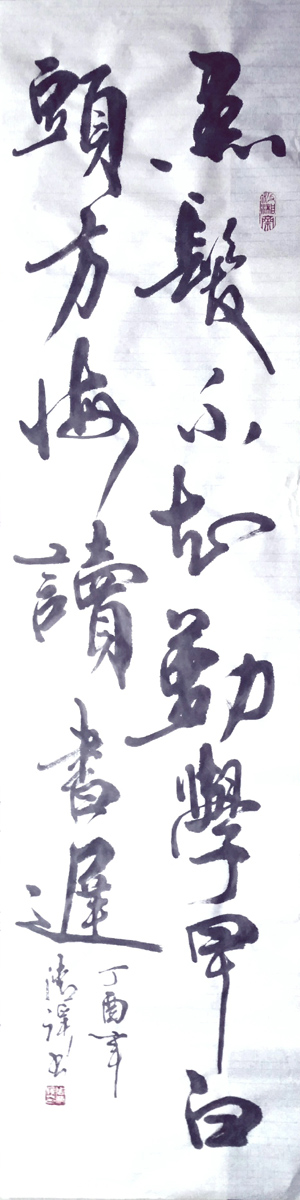 黑髮不知勤學早白
頭方悔讀書遲
丁酉年
書